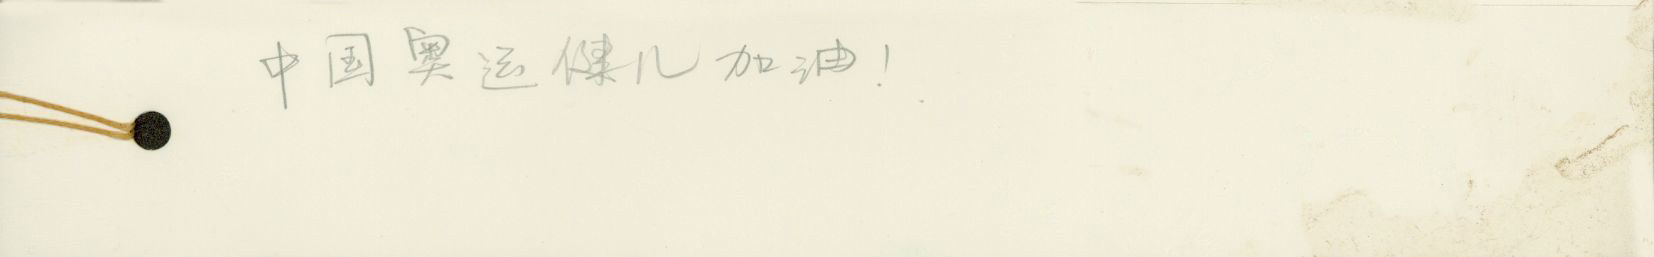 中国奥运健儿加油！